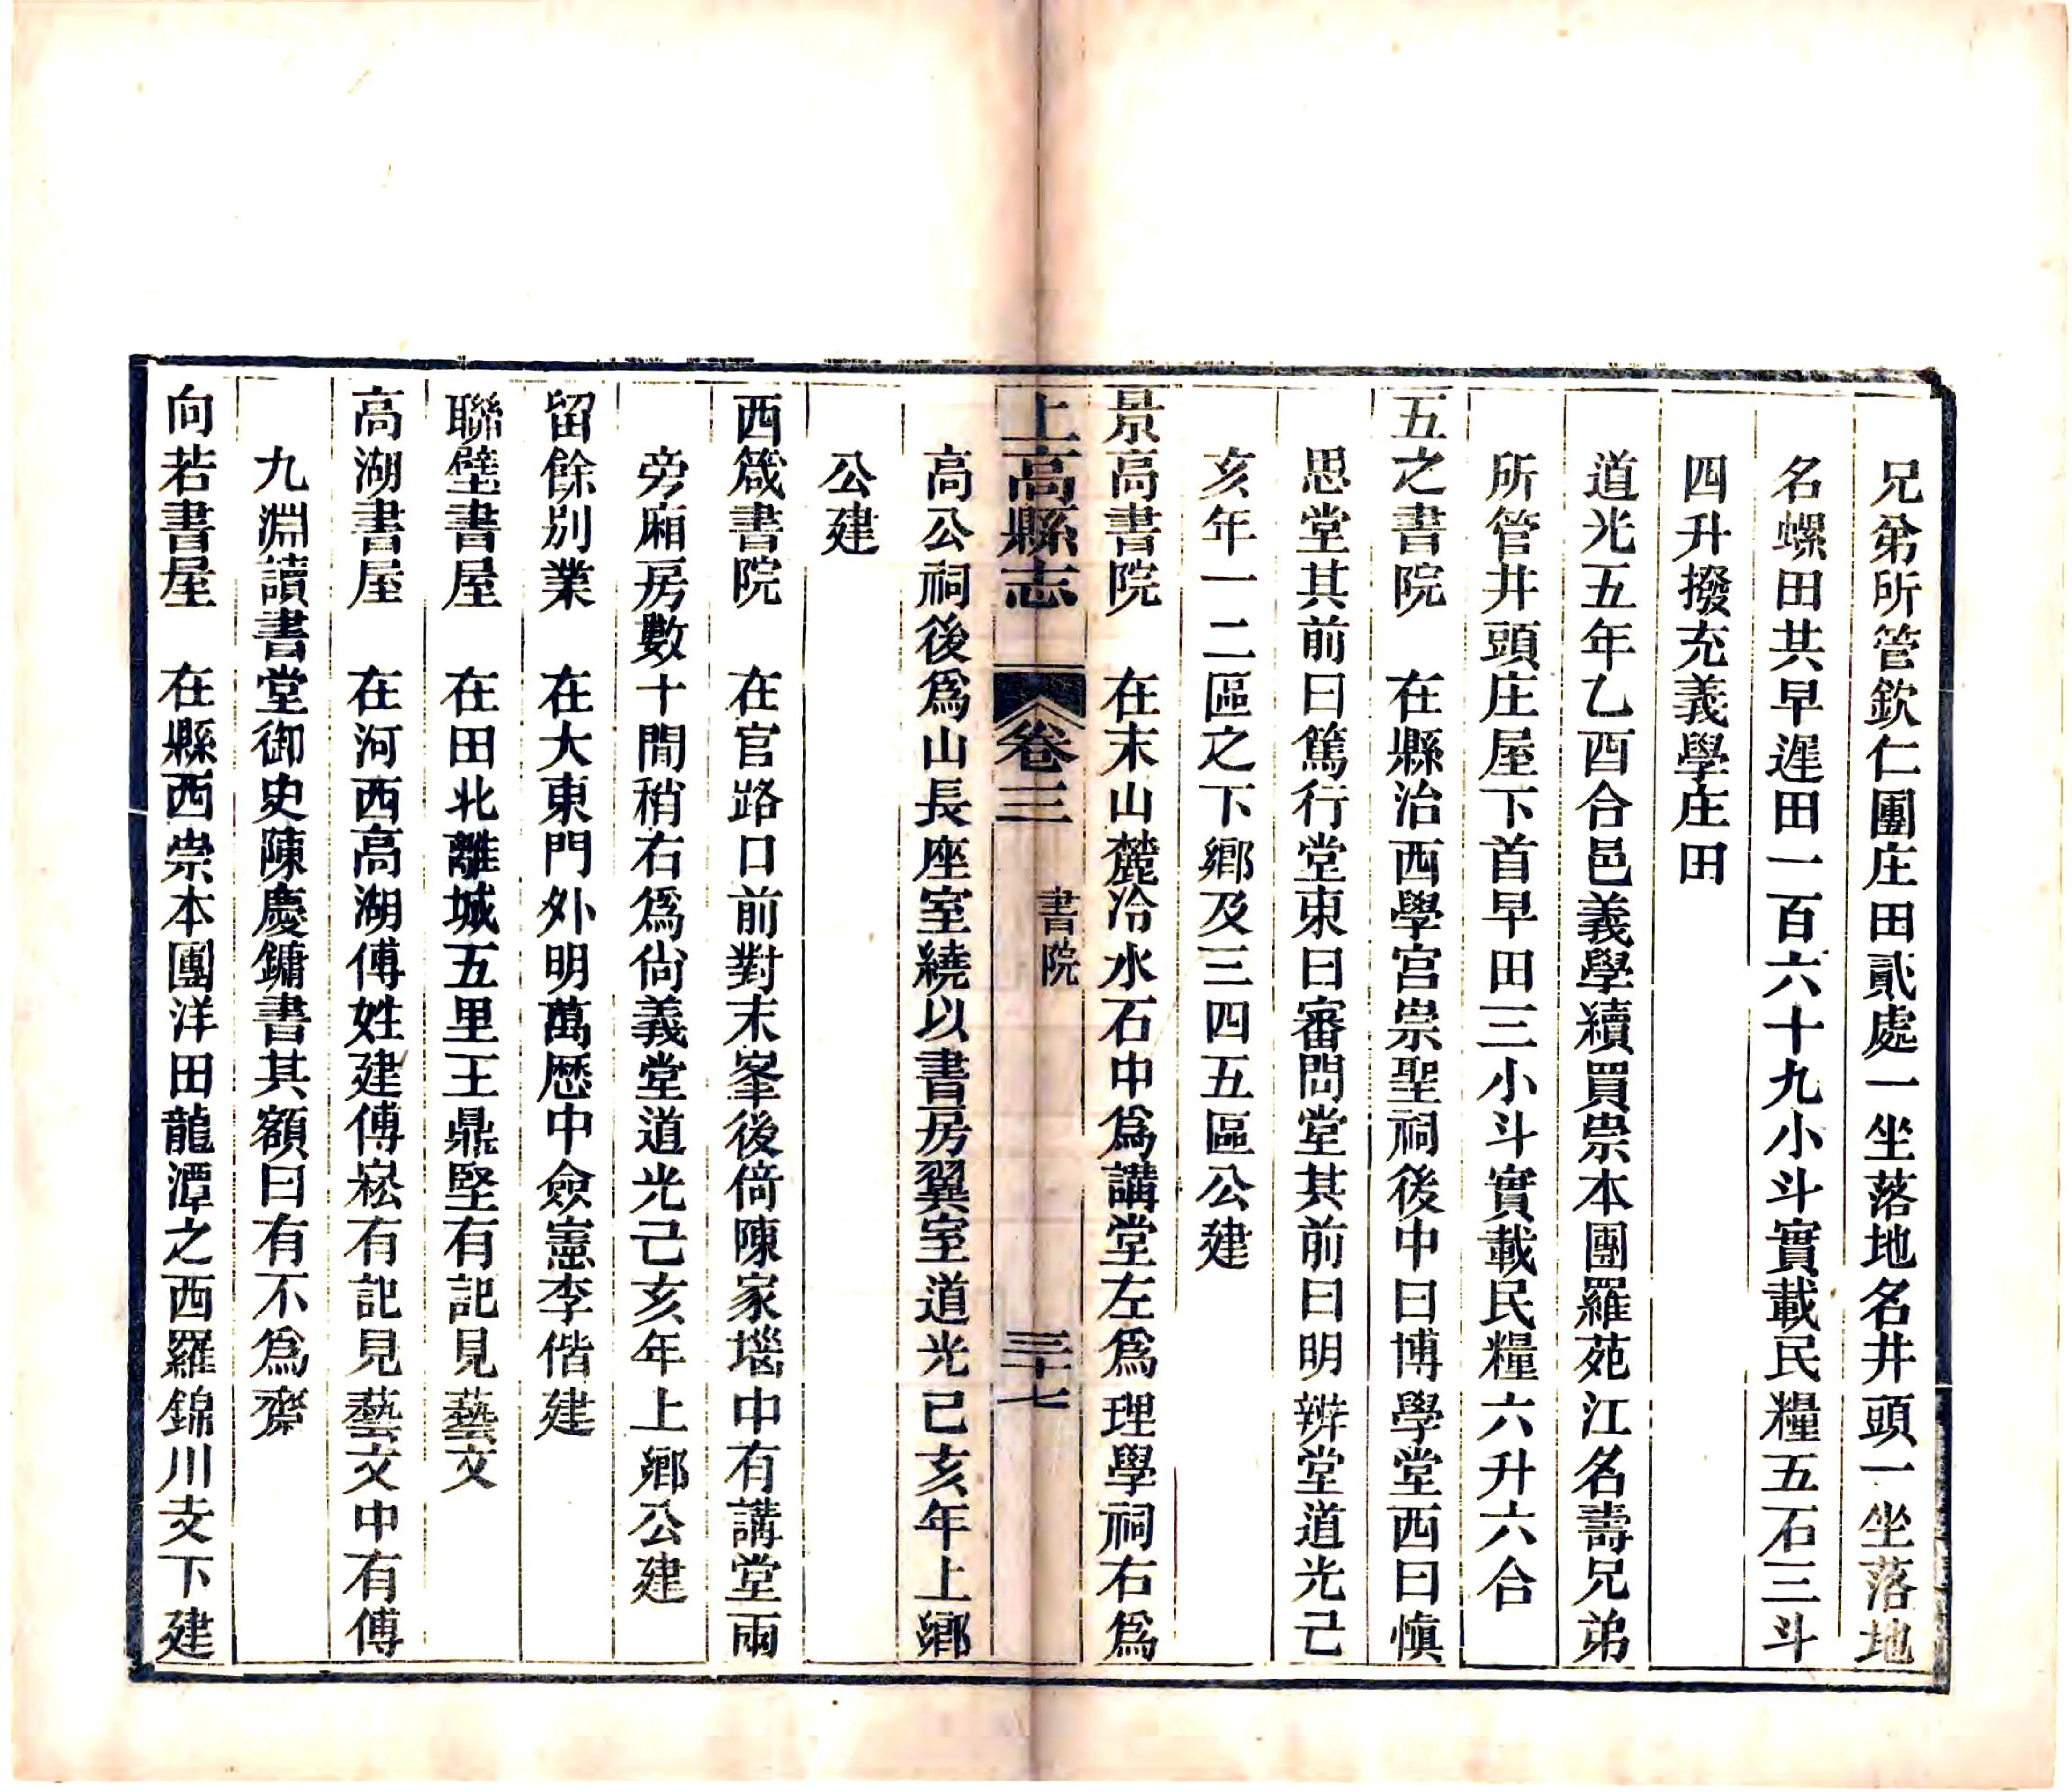 兄弟所管欽仁團庄田貳處一坐落地名井頭一坐落地
名螺田共早遲田一百六十九小斗實載民糧五石三斗
四升撥充義學庄田
道光五年乙酉合邑義學續買崇本團羅苑江名壽兄弟
所管井頭庄屋下首早田三小斗實載民糧六升六合
五之書院　在縣治西學宫崇聖祠後中曰博學堂西曰慎
思堂其前曰篤行堂東曰審問堂其前曰明辨堂道光己
亥年一二區之下鄉及三四五區公建
景高書院　在末山麓冷水石中爲講堂左爲理學祠右爲
上高縣志　卷三　書院　三十七
高公祠後爲山長座室繞以書房翼室道光已亥年上鄉
公建
西箴書院　在官路口前對末峯後倚陳家塪中有講堂兩
旁廂房數十間稍右爲尙義堂道光己亥年上鄉公建
留餘別業　在大東門外明萬歷中僉憲李偕建
聯壁書屋　在田北離城五里王鼎堅有記見藝文
高湖書屋　在河西高湖傅姓建傅崧有記見藝文中有傅
九淵讀書堂御史陳慶鏞書其額曰有不爲齋
向若書屋　在縣西崇本團洋田龍潭之西羅錦川支下建